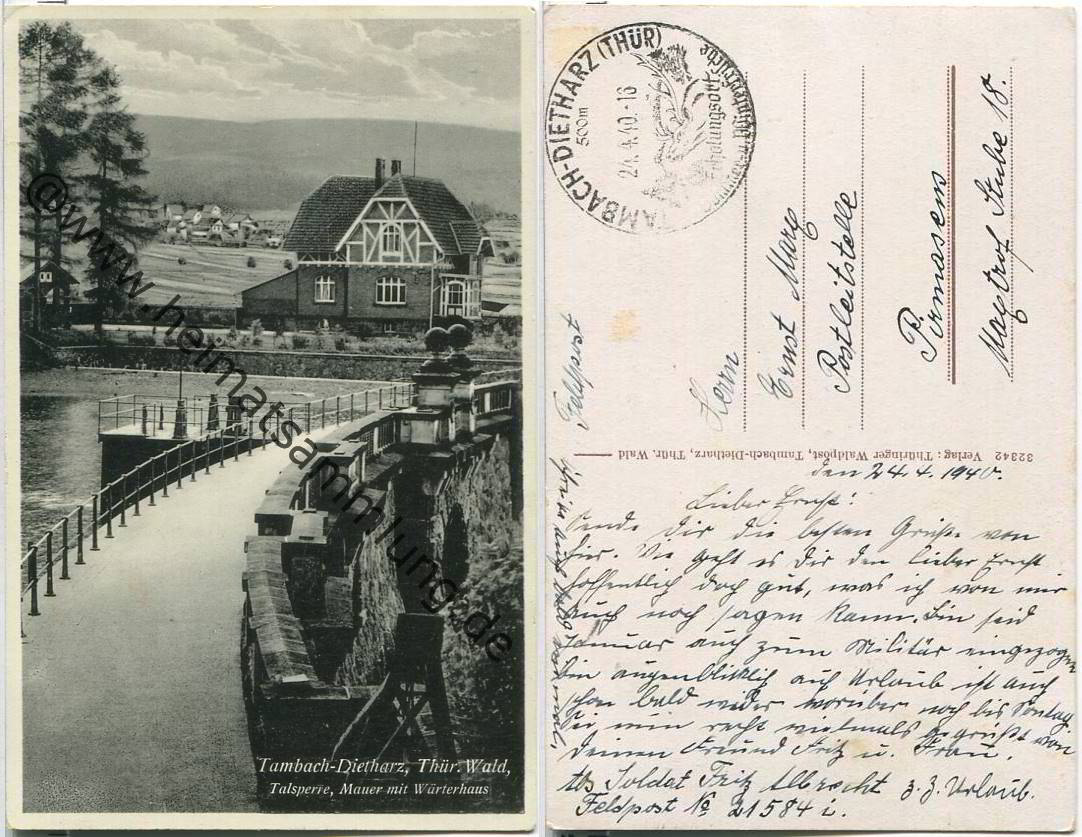 Tambach-Dietharz, Thür. Wald,
Talsperre, Mauer mit Wärterhaus
© www.heimatsammlung.de
TAMBACH-DIETHARZ (THÜR)
500m
24.4.40.-16
Erholungsort
TAMBACH
Feldpost
Herrn
Ernst Marz
Postleitstelle
Pirmasens
32342 Verlag: Thüringer Waldpost, Tambach-Dietharz, Thür. Wald
den 24.4.1940.
Lieber Ernst!
Sende Dir die besten Grüße von
hier. Wie geht es Dir den lieber Ernst
hoffentlich doch gut, was ich von mir
auch noch sagen kann. Bin seid
Januar auch zum Militär eingezogen
bin augenblicklich auf Urlaub ist auch
schon bald wider vorüber noch bis Sontag.
Sei nun recht vielmals gegrüßt von
Deinem Freund Fritz u. Frau.
Abs Soldat Fritz Albrecht z. Z. Urlaub.
Feldpost No 21584 i.